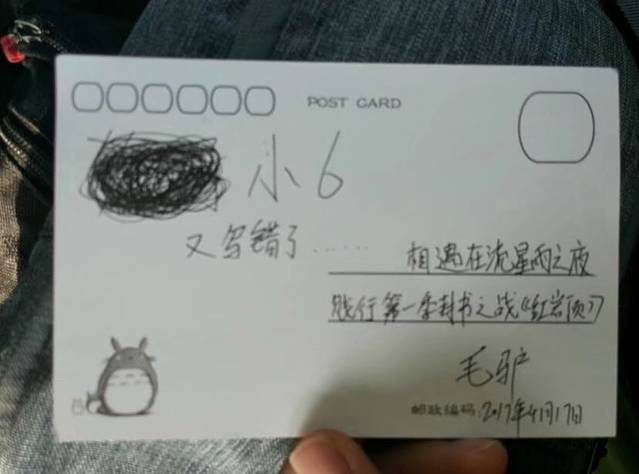 POST CARD
小6
又写错了......
相遇在流星雨之夜
践行第一条封书之战《红岩顶》
毛驴
邮政编码:2017年4月17日